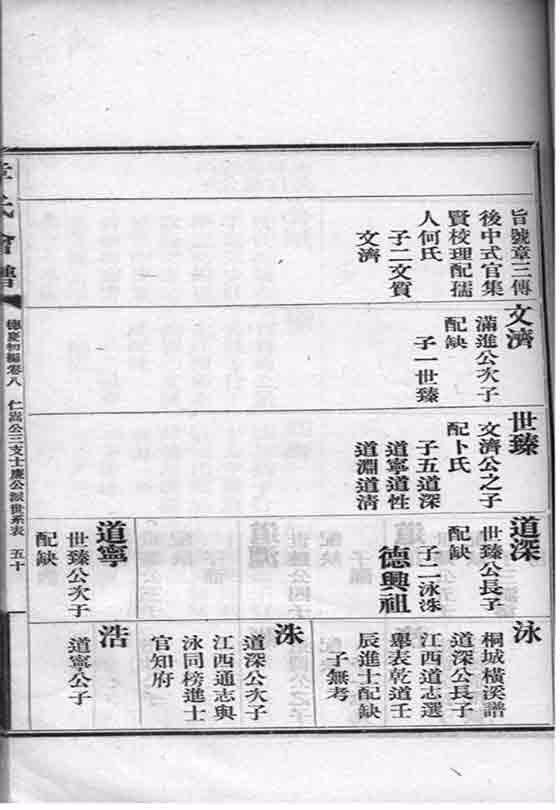 旨號章三傳
後中式官集
賢校理配孺
人何氏
子二文質
文濟
文濟
滿進公次子
配缺
子一世臻
世臻
文濟公之子
配卜氏
子五道深
道寧道性
道淵道清
道深
世臻公長子
配缺
子二泳洙
德興祖
道寧
世臻公次子
配缺
泳
桐城橫溪譜
道深公長子
江西道志選
舉表乾道壬
辰進士配缺
子無考
洙
道深公次子
江西通志與
泳同榜進士
官知府
浩
道寧公子
章氏會譜
德慶初編卷八 仁嵩公三支士廉公派世系表 五十